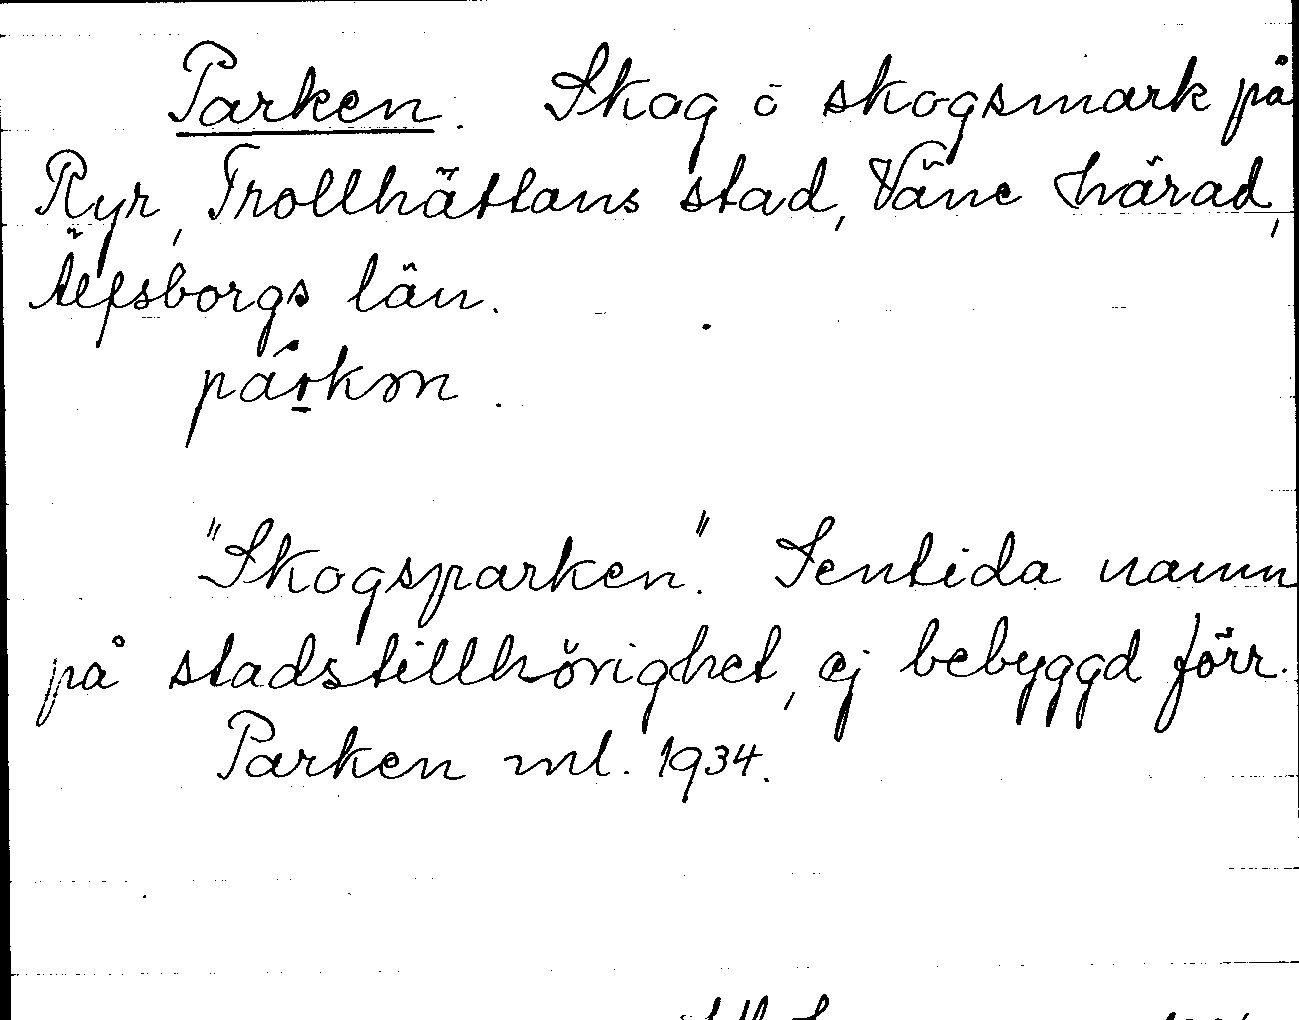 Parken. Skog o skogsmark på
Ryr, Trollhättans stad, Väne härad,
Älfsborgs län.
"Skogsparken". Sentida namn
på stadstillhörighet, ej bebyggd förr.
Parken ml. 1934.